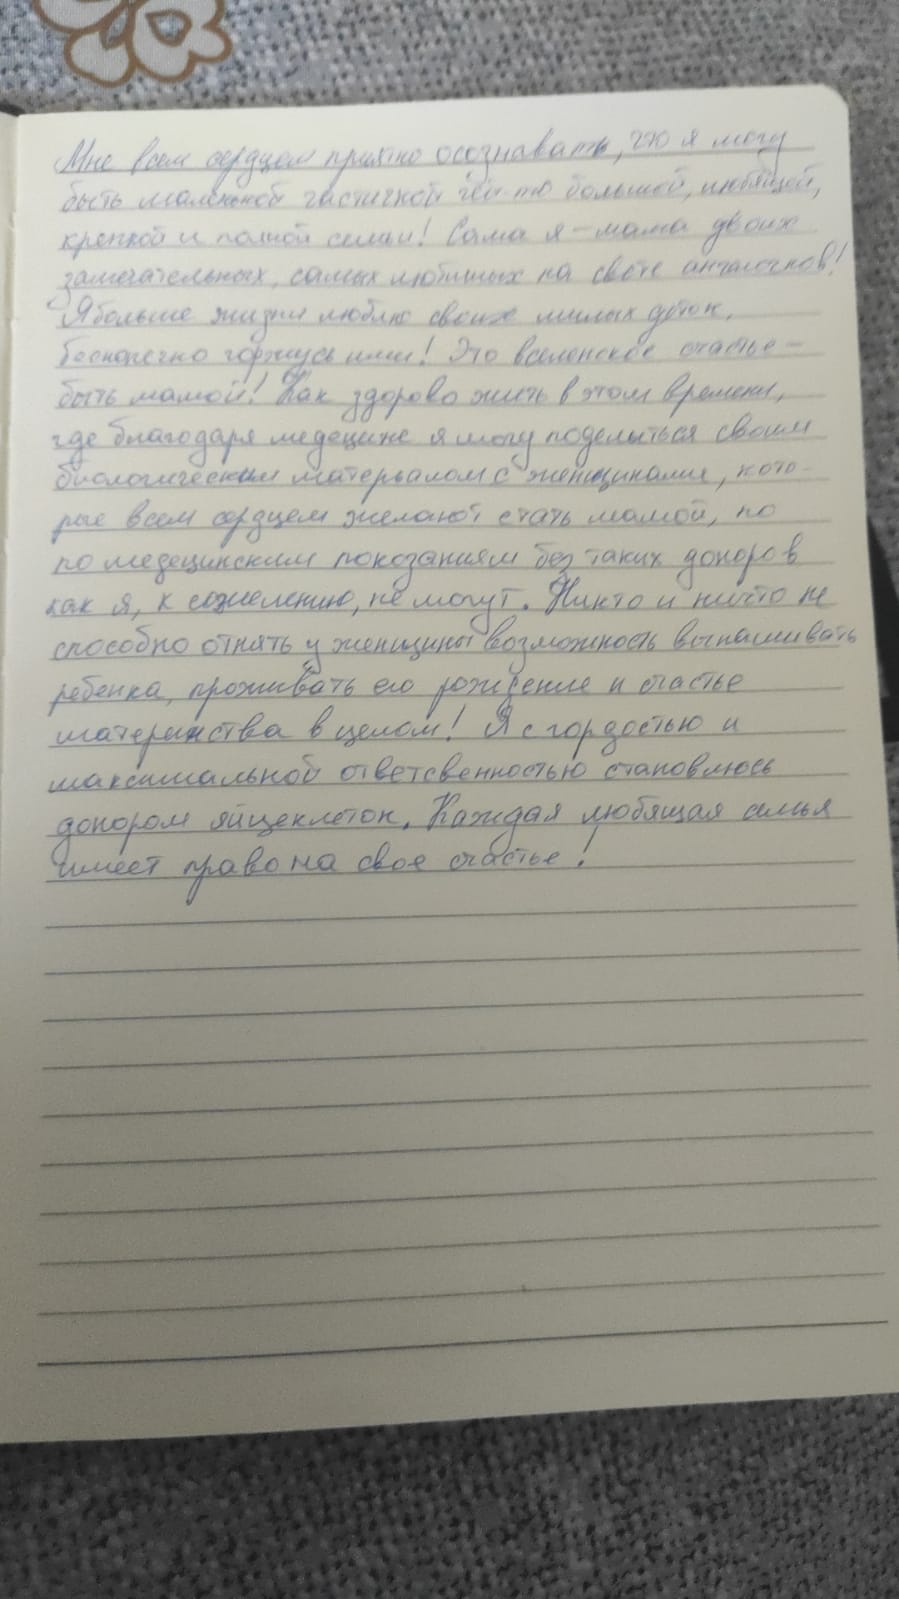 Мне всем сердцем приятно осознавать, что я могу
быть маленькой частичкой чей-то большой, любящей,
крепкой и полной семьи! Сама я – мама двоих
замечательных, самых любимых на свете ангелочков!
Я больше жизни люблю своих милых деток,
бесконечно горжусь ими! Это вселенское счастье –
быть мамой! Как здорово жить в этом времени,
где благодаря медецине я могу поделиться своим
биологическим матерьалом с женщинами, кото-
рые всем сердцем желают стать мамой, но
по медецинским показаниям без таких доноров
как я, к сожелению, не могут. Никто и ничто не
способно отнять у женщины возможность вынашивать
ребенка, проживать его рождение и счастье
материнства в целом! Я с гордостью и
максимальной ответсвенностью становлюсь
донором яйцеклеток. Каждая любящая семья
имеет право на свое счастье!